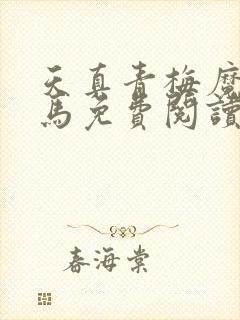 天真青梅魔
馬免費閱讀
春海棠